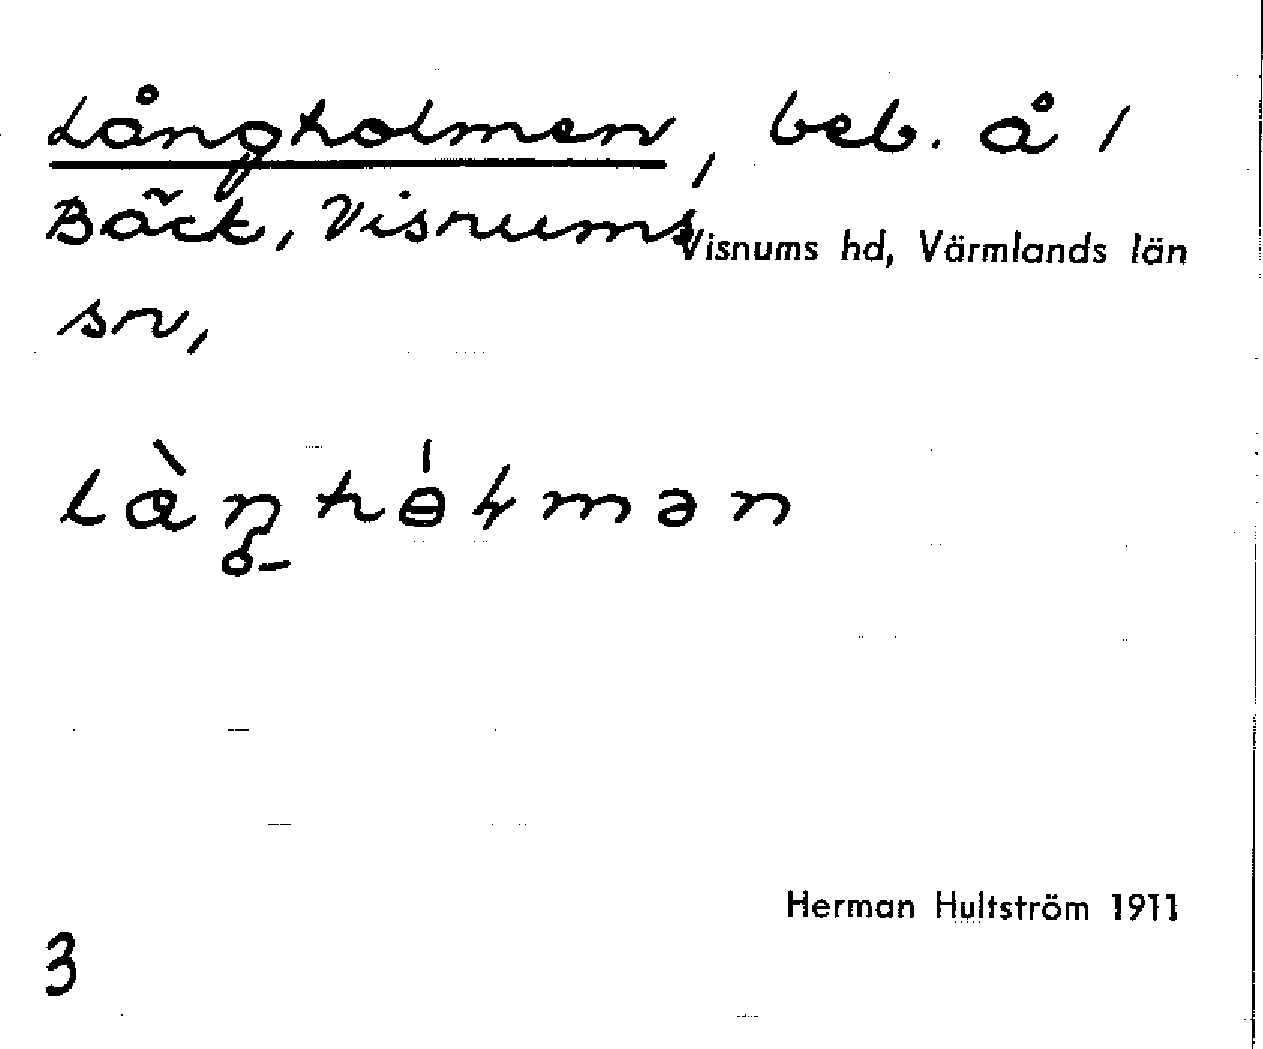 Långholmen, beb. å 1
Bäck, Visnums
Visnums hd, Värmlands län
sn,
Herman Hultström 1911
3